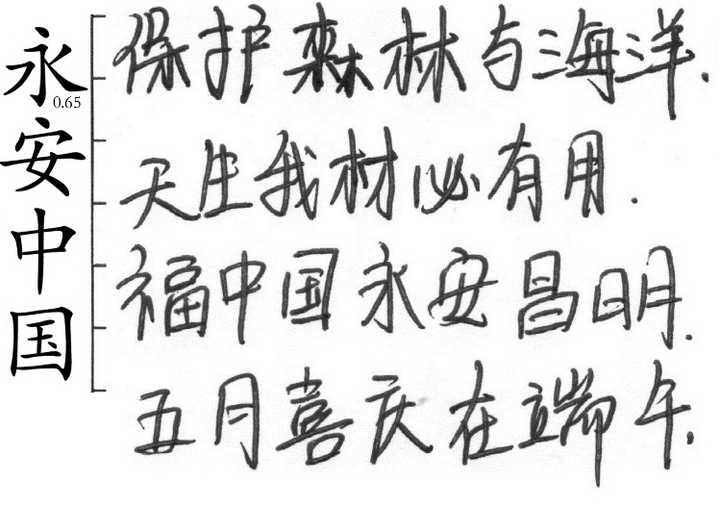 永安中国
0.65
保护森林与海洋.
天生我材必有用.
福中国永安昌明.
五月喜庆在端午.